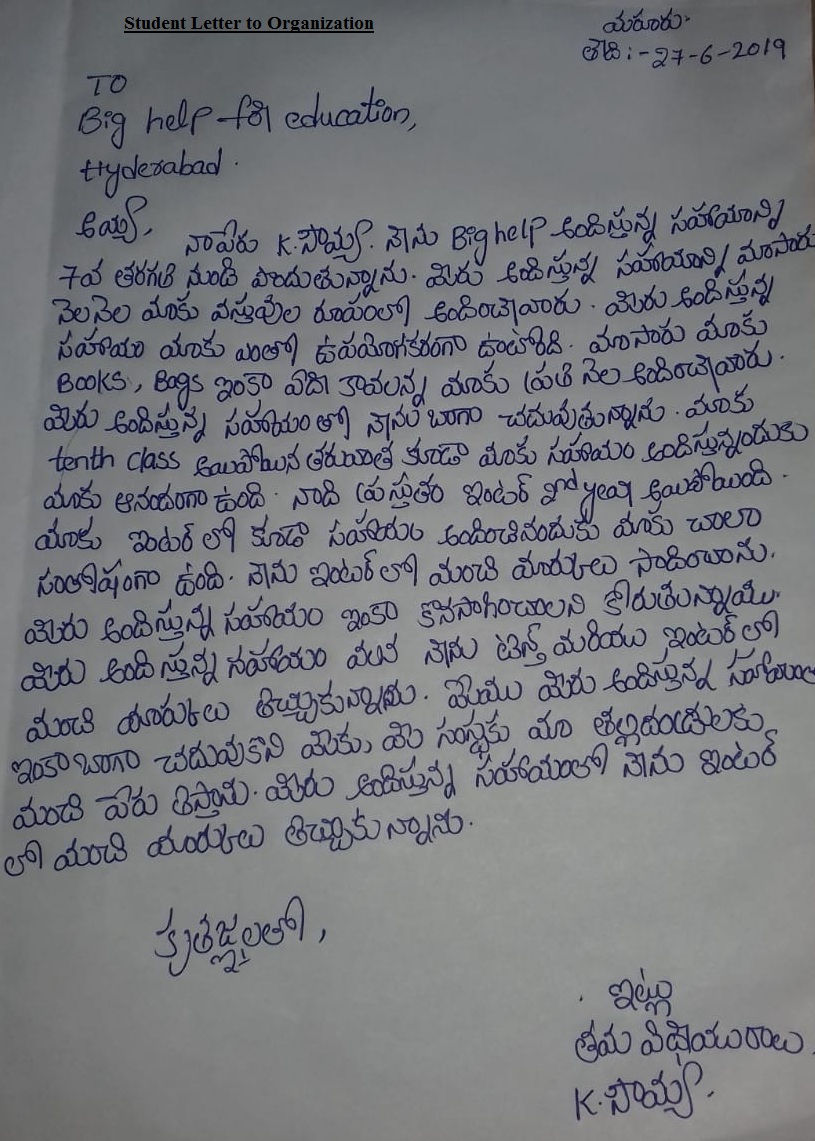 Student Letter to Organization
మరూరు.
తేది :- 27-6-2019
TO
Big help for education,
Hyderabad.
అయ్యా,
నా పేరు K.సౌమ్య. నేను Big help అందిస్తున్న సహాయాన్ని
7వ తరగతి నుండి పొందుతున్నాను. మీరు అందిస్తున్న సహాయాన్ని మాసారు
నెలనెల మాకు వస్తువుల రూపంలో అందించేవారు. మీరు అందిస్తున్న
సహాయం మాకు ఎంతో ఉపయోగకరంగా ఉంటోంది. మాసారు మాకు
Books, Bags ఇంకా ఏది కావలన్న మాకు ప్రతి నెల అందించేవారు.
మీరు అందిస్తున్న సహాయంతో నేను బాగా చదువుతున్నాను. మాకు
tenth class అయిపోయిన తరువాత కూడా మాకు సహాయం అందిస్తున్నందుకు
మాకు ఆనందంగా ఉంది. నాది ప్రస్తుతం ఇంటర్ 2nd year అయిపోయింది.
మాకు ఇంటర్ లో కూడా సహాయం అందించినందుకు మాకు చాలా
సంతోషంగా ఉంది. నేను ఇంటర్ లో మంచి మార్కులు సాదించాను.
మీరు అందిస్తున్న సహాయం ఇంకా కొనసాగించాలని కోరుతున్నాము.
మీరు అందిస్తున్న సహాయం వలన నేను టెన్త్ మరియు ఇంటర్ లో
మంచి మార్కులు తెచ్చుకున్నాను. మేము మీరు అందిస్తున్న
ఇంకా బాగా చదువుకొని మీకు, మీ సంస్థకు మా తల్లిదండ్రులకు
మంచి పేరు తెస్తాము. మీరు అందిస్తున్న సహాయంతో నేను ఇంటర్
లో మంచి మార్కులు తెచ్చుకున్నాను.
కృతజ్ఞతలతో,
ఇట్లు
తమ విద్యార్థియురాలు
K.సౌమ్య.